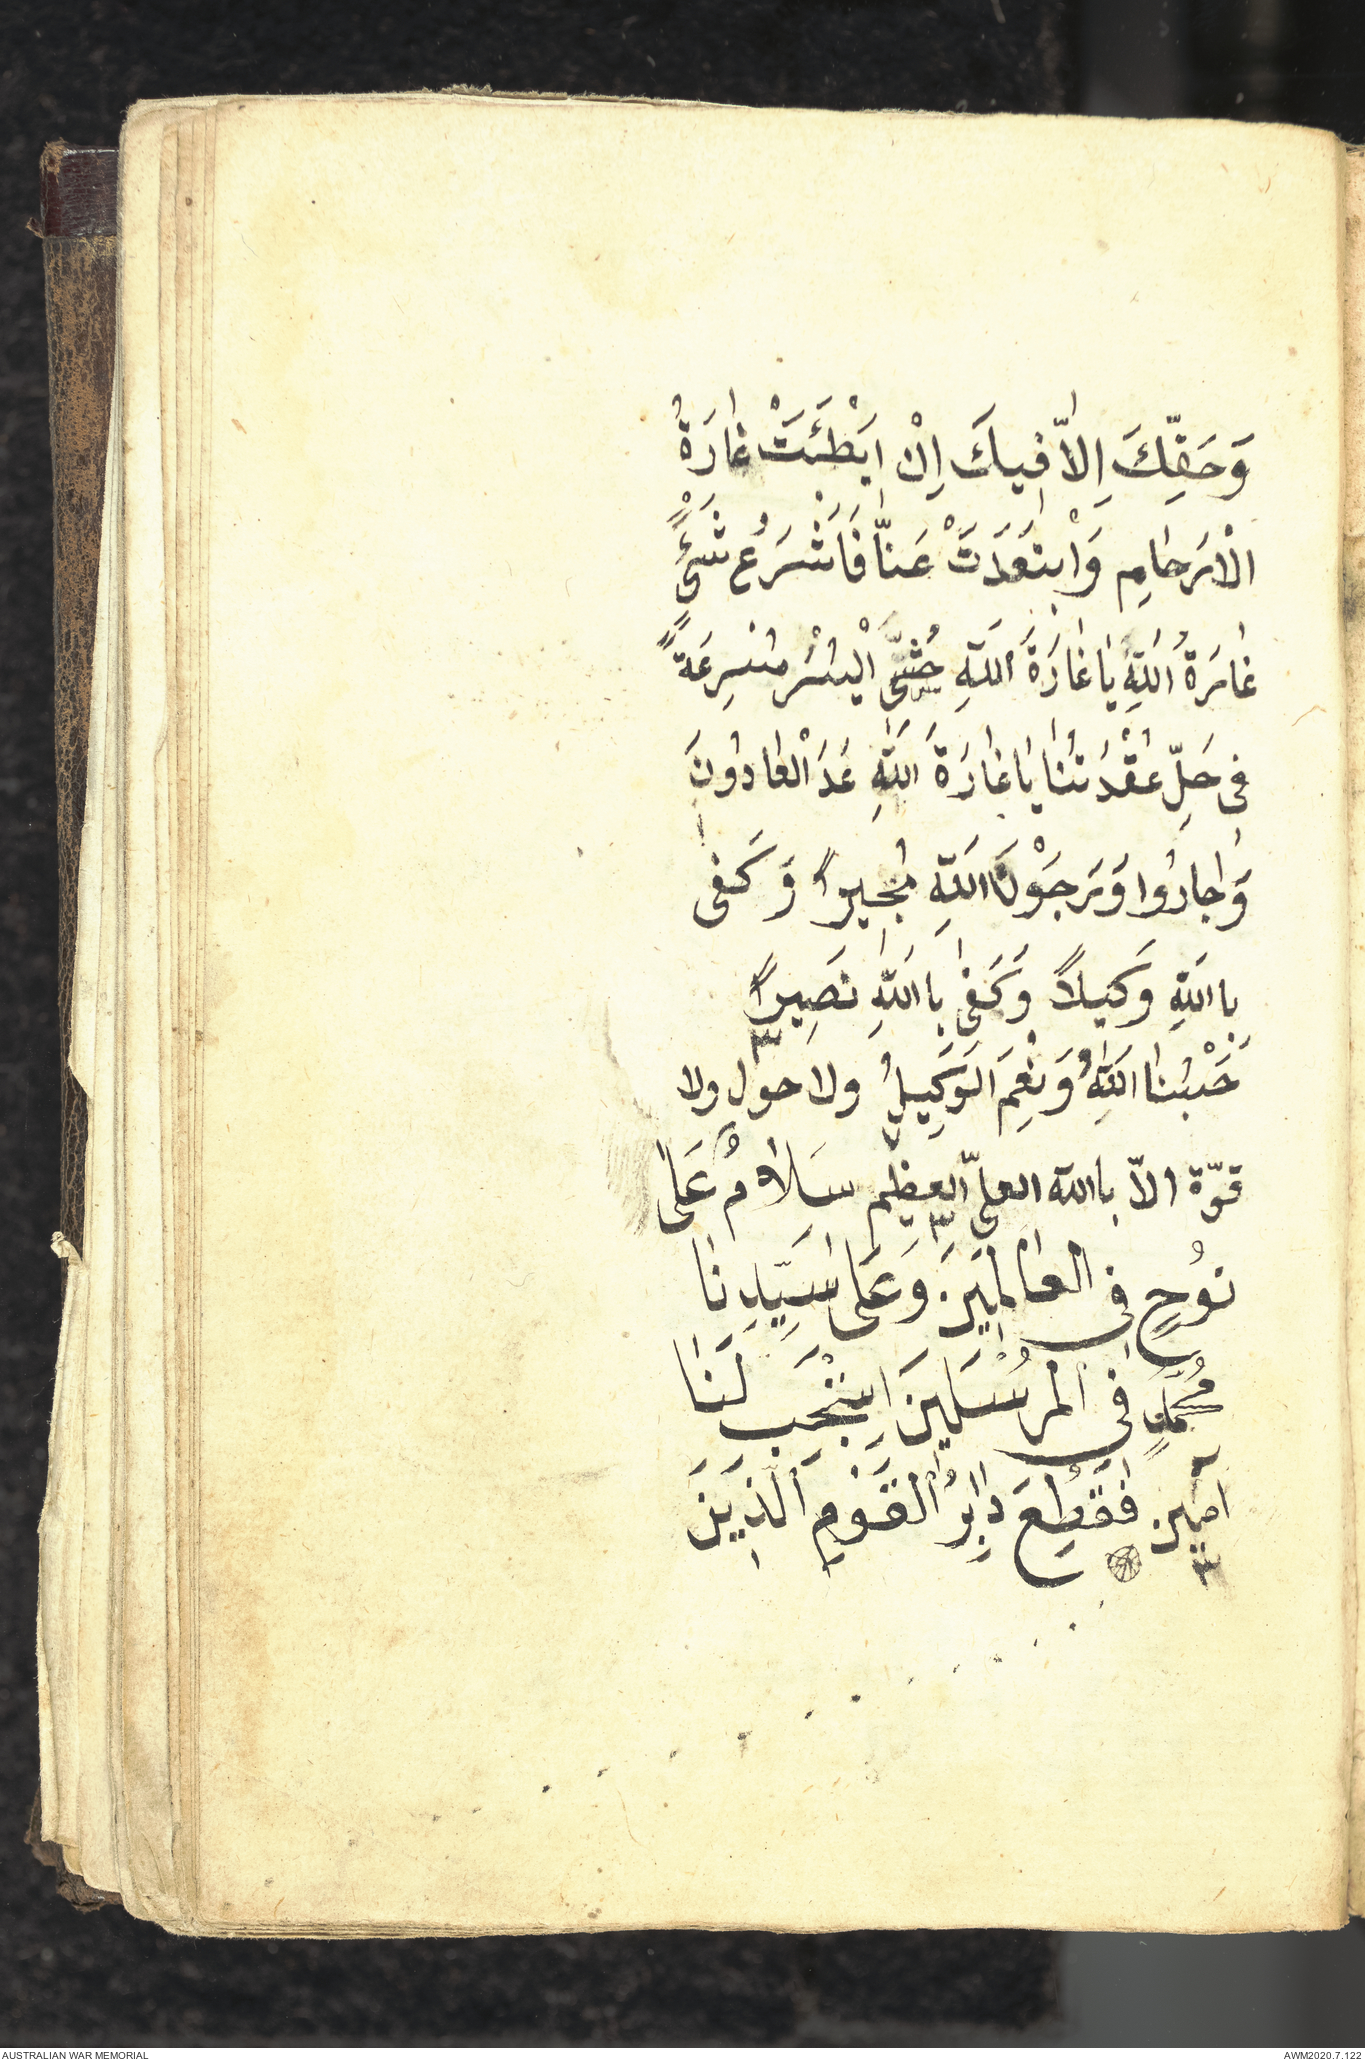 وَحَقِّكَ اِلاّ فِيكَ اِنْ ابَطْئَتْ غَارَةُ
الْارَحَامِ وَابْتَعَدَتْ عَنَّا فَاَسْرَعُ شَيْءٍ
غَارَةُ اللّهِ يَا غَارَةَ اللّهِ حُثّى الْيسْر مسْرِعَةً
فى حَلِّ عقْدَتُنَا يَا غَارَةَ اللّهِ عَدَ الْعَادُونَ
وَجَارُوا وَرَجَوْنَا اللّهِ مُجيراً وَكَفى
بِاللّهِ وَكيلاً وَكَفى بِاللّهِ نَصِيراً
٣
حَسْبُنَا اللّهُ وَنِعْمَ الوَكِيلُ ولا حول ولا
قوّة الاّ باالله العلىّ العظِيم سَلَامٌ عَلَى
٣
نوُحٍ فِي العَالَمِينَ وَعَلَى سَيِّدِنَا
مُحَمَّدٍ فِي المُرْسَلِينَ اسْتَجِب لَنَا
امين فَقُطِعَ دَابِرُ القَوْمِ الَّذِينَ
٣
AUSTRALIAN WAR MEMORIAL
AWM2020.7.122